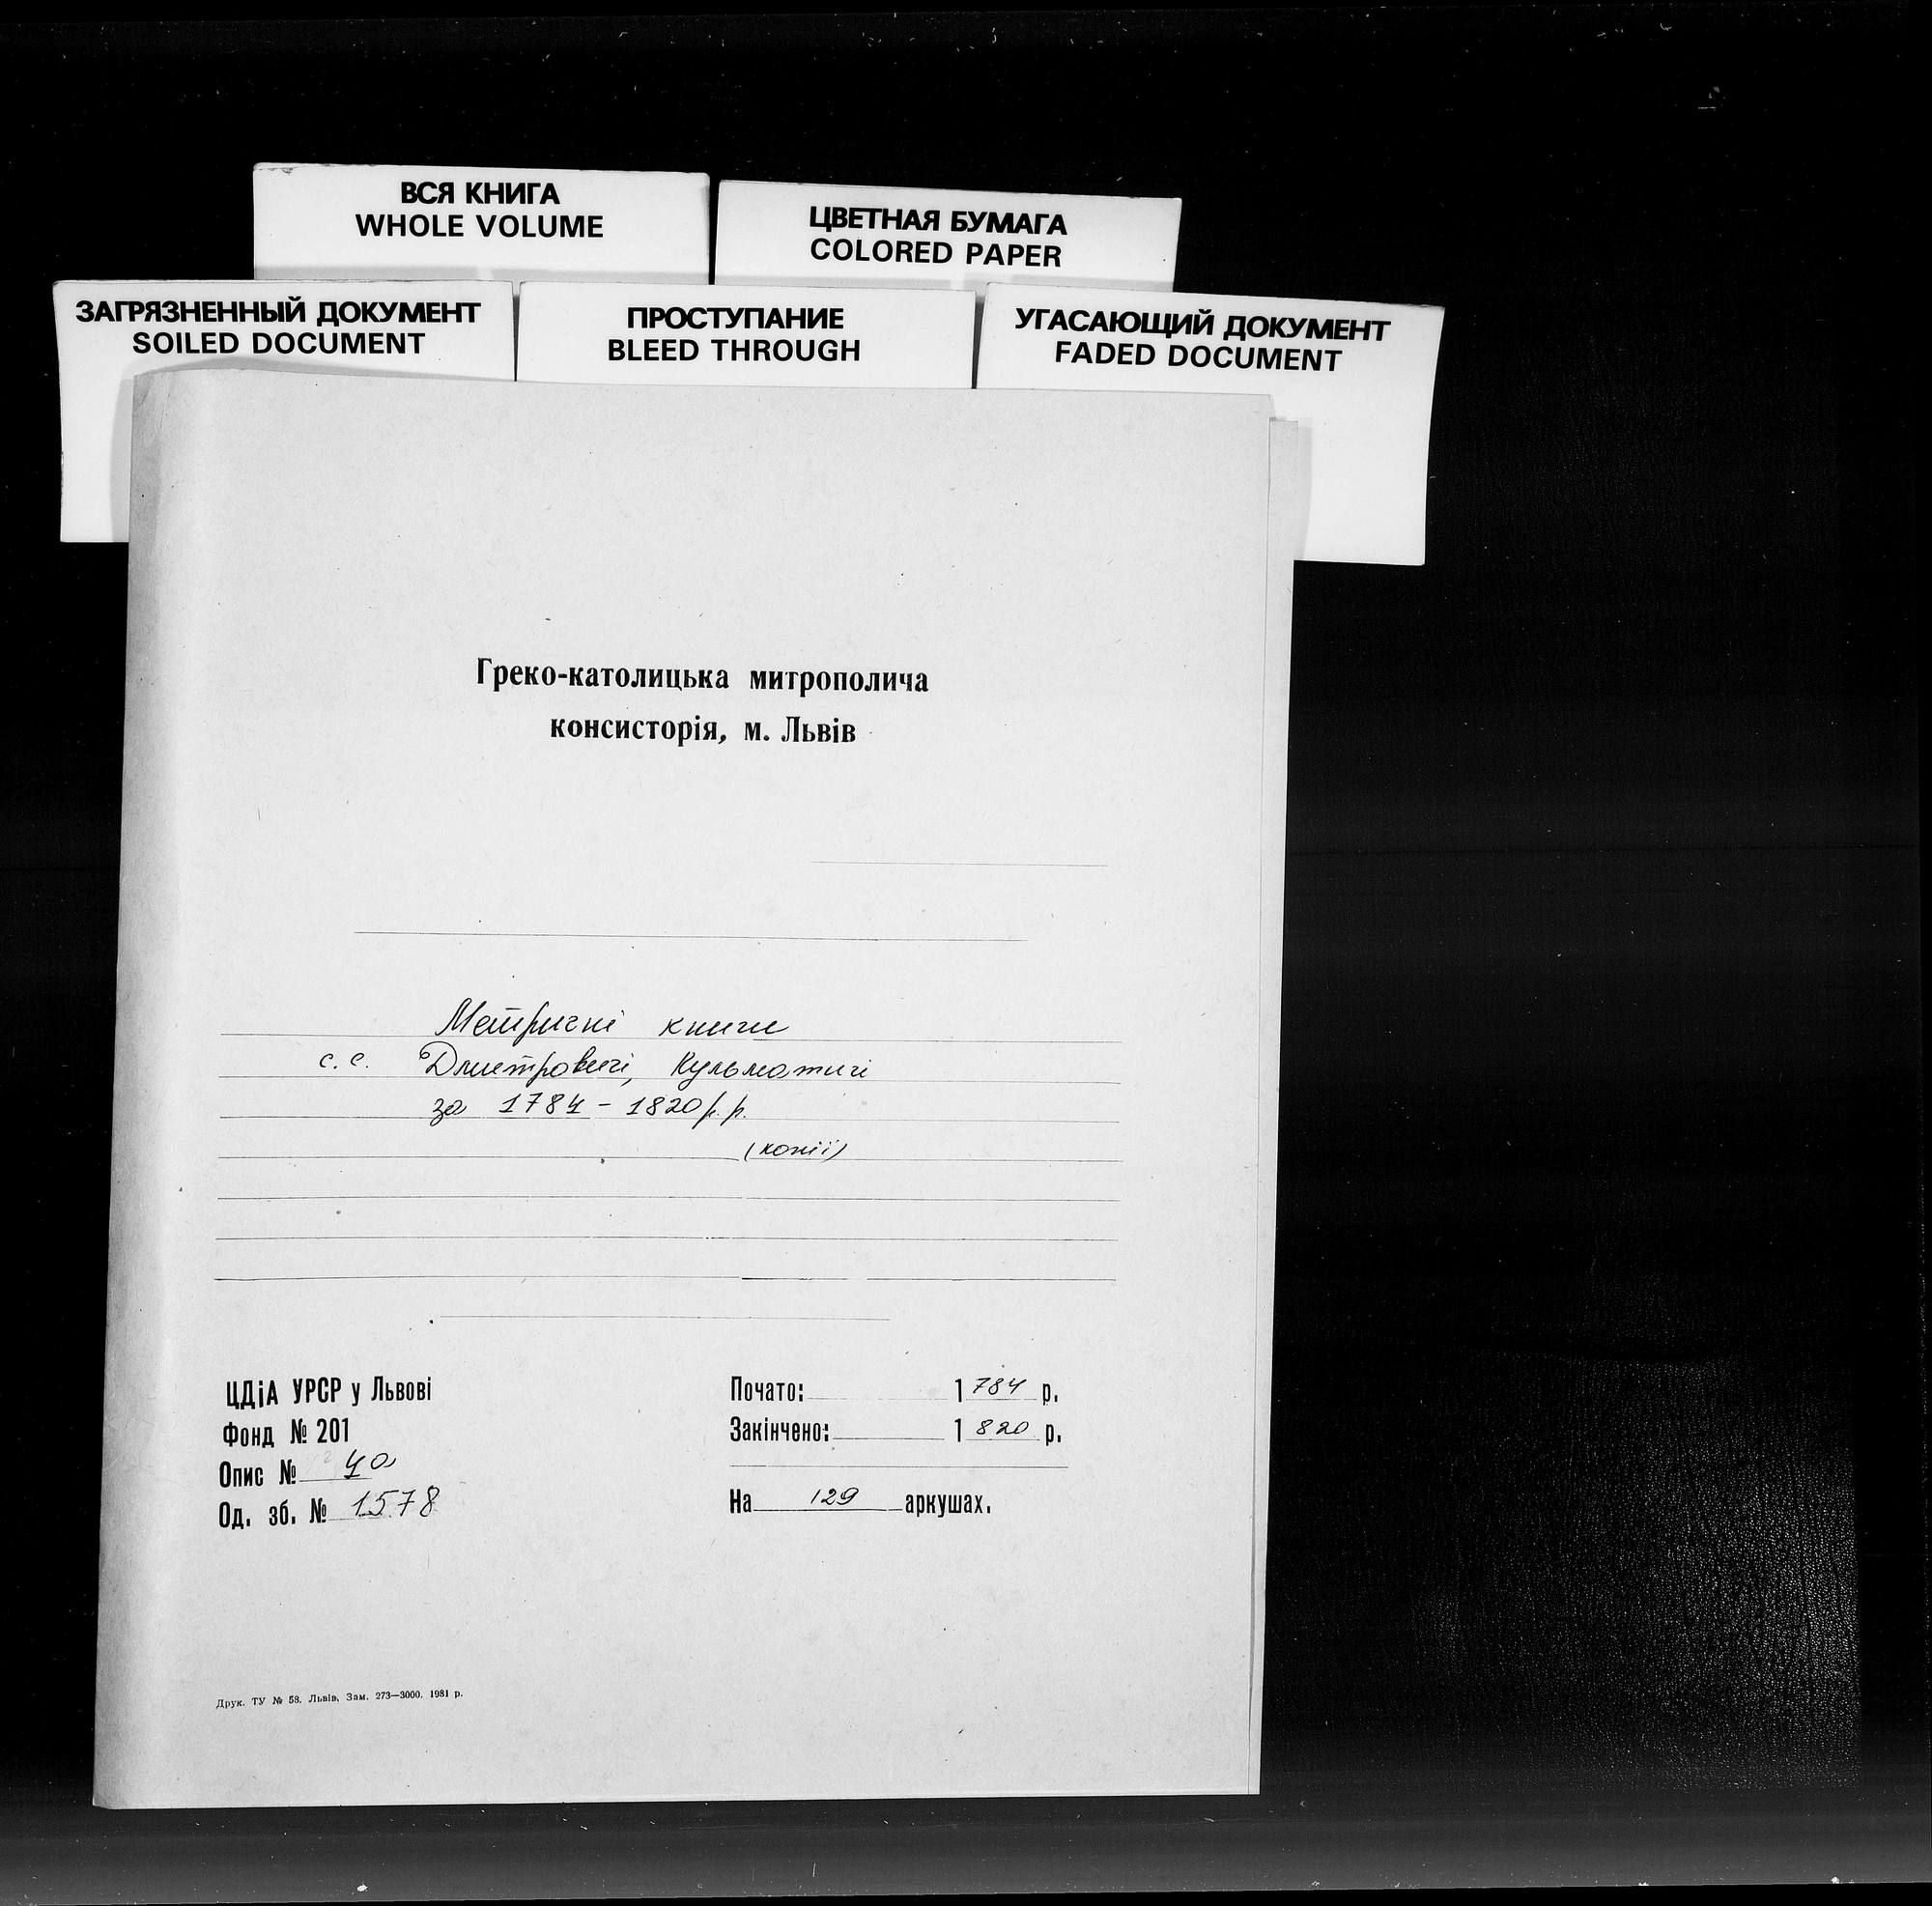 ВСЯ КНИГА
WHOLE VOLUME
ЦВЕТНАЯ БУМАГА
COLORED PAPER
ЗАГРЯЗНЕННЫЙ ДОКУМЕНТ
SOILED DOCUMENT
ПРОСТУПАНИЕ
BLEED THROUGH
УГАСАЮЩИЙ ДОКУМЕНТ
FADED DOCUMENT
Греко-католицька митрополича
консисторія, м. Львів
Метричні книги
с.с. Дмитровичі, Кульматичі
за 1784 - 1820 р.р.
(копії)
ЦДіА УРСР у Львові
Фонд № 201
Опис № 4а
Од. зб. № 1578
Почато: 1784 р.
Закінчено: 1820 р.
На 129 аркушах.
Друк. ТУ № 58. Львів, Зам. 273—3000. 1981 р.